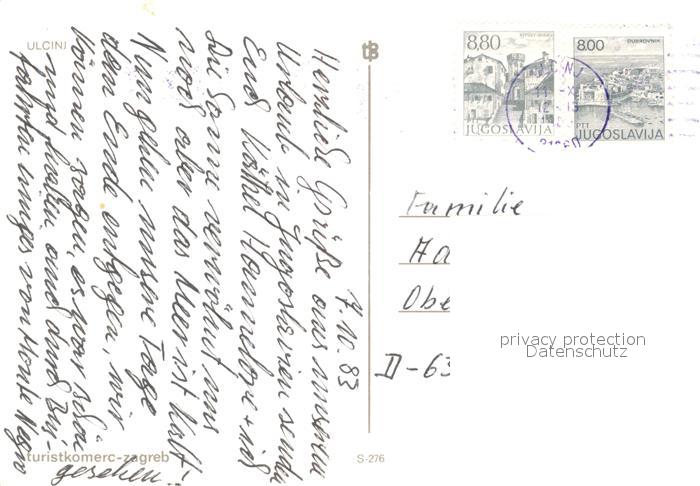 ULCINJ
8,80
JUGOSLAVIJA
8.00
DUBROVNIK
PTT
JUGOSLAVIJA
7.10.83
Herzliche Grüße aus unserem
Urlaub in Jugoslawien senden
Euch Käthel Hannelore + ich
Die Sonne verwöhnt uns
noch aber das Meer ist kalt!
Nun gehen unsere Tage
dem Ende entgegen, wir
können sagen, es war schön
und haben auch durch Bus-
fahrten einiges von Monte Negro
gesehen.
Familie
Ha
Obe
D-63
privacy protection
Datenschutz
turistkomerc-zagreb
S-276